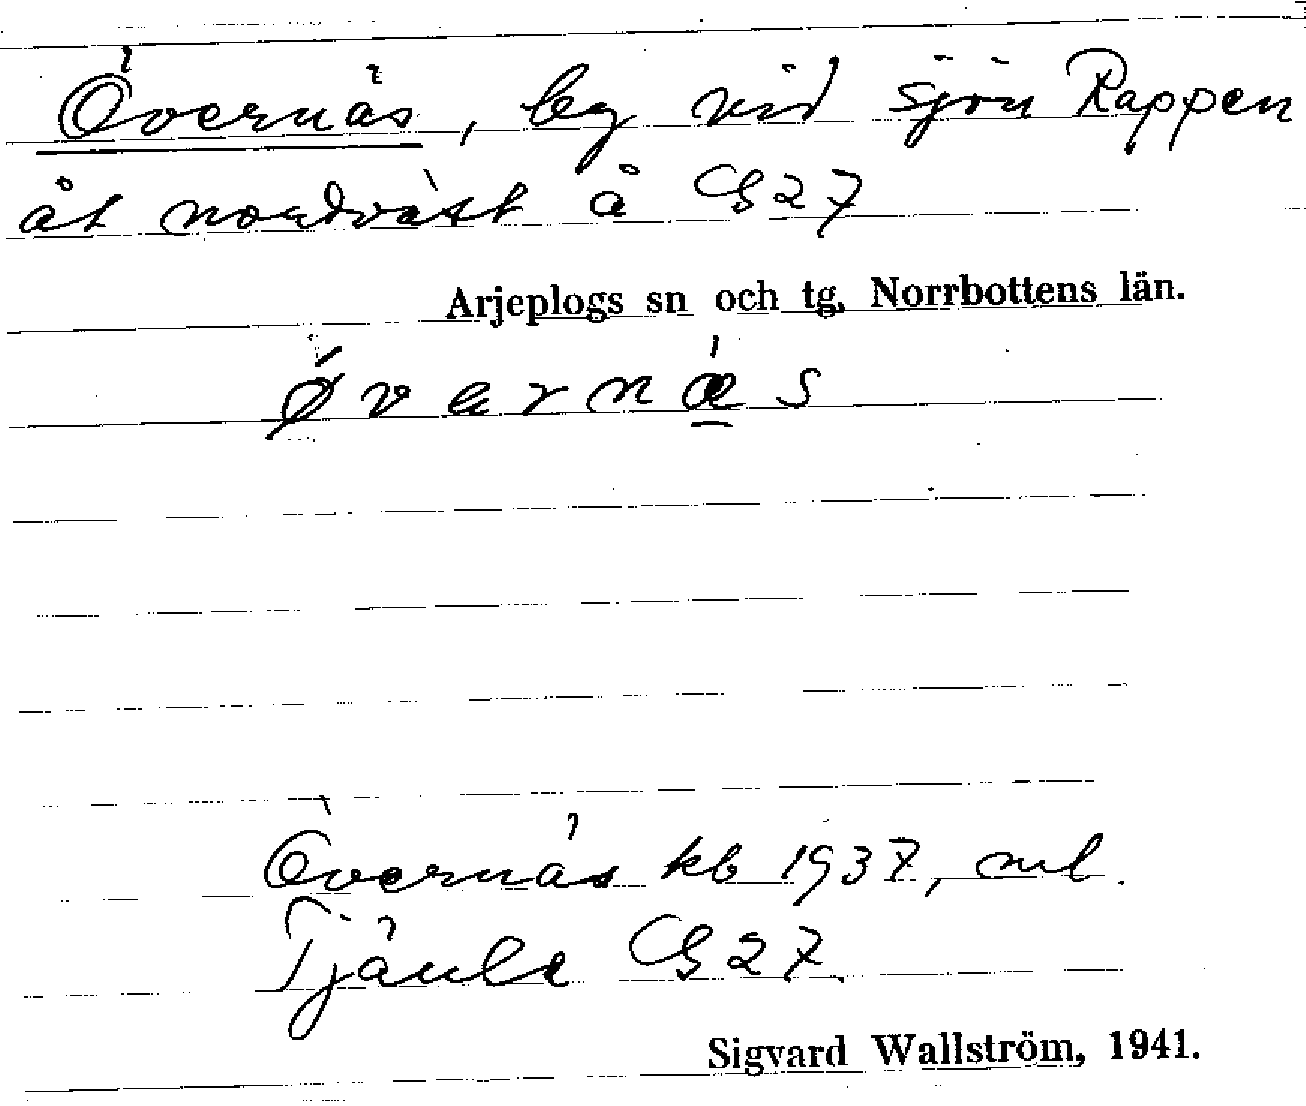 Övernäs, lg vid sjön Rappen
åt nordväst å G 27
Arjeplogs sn och tg, Norrbottens län.
ǿvernǽs
Övernäs kb 1937, enl.
Tjäule G 27.
Sigvard Wallström, 1941.